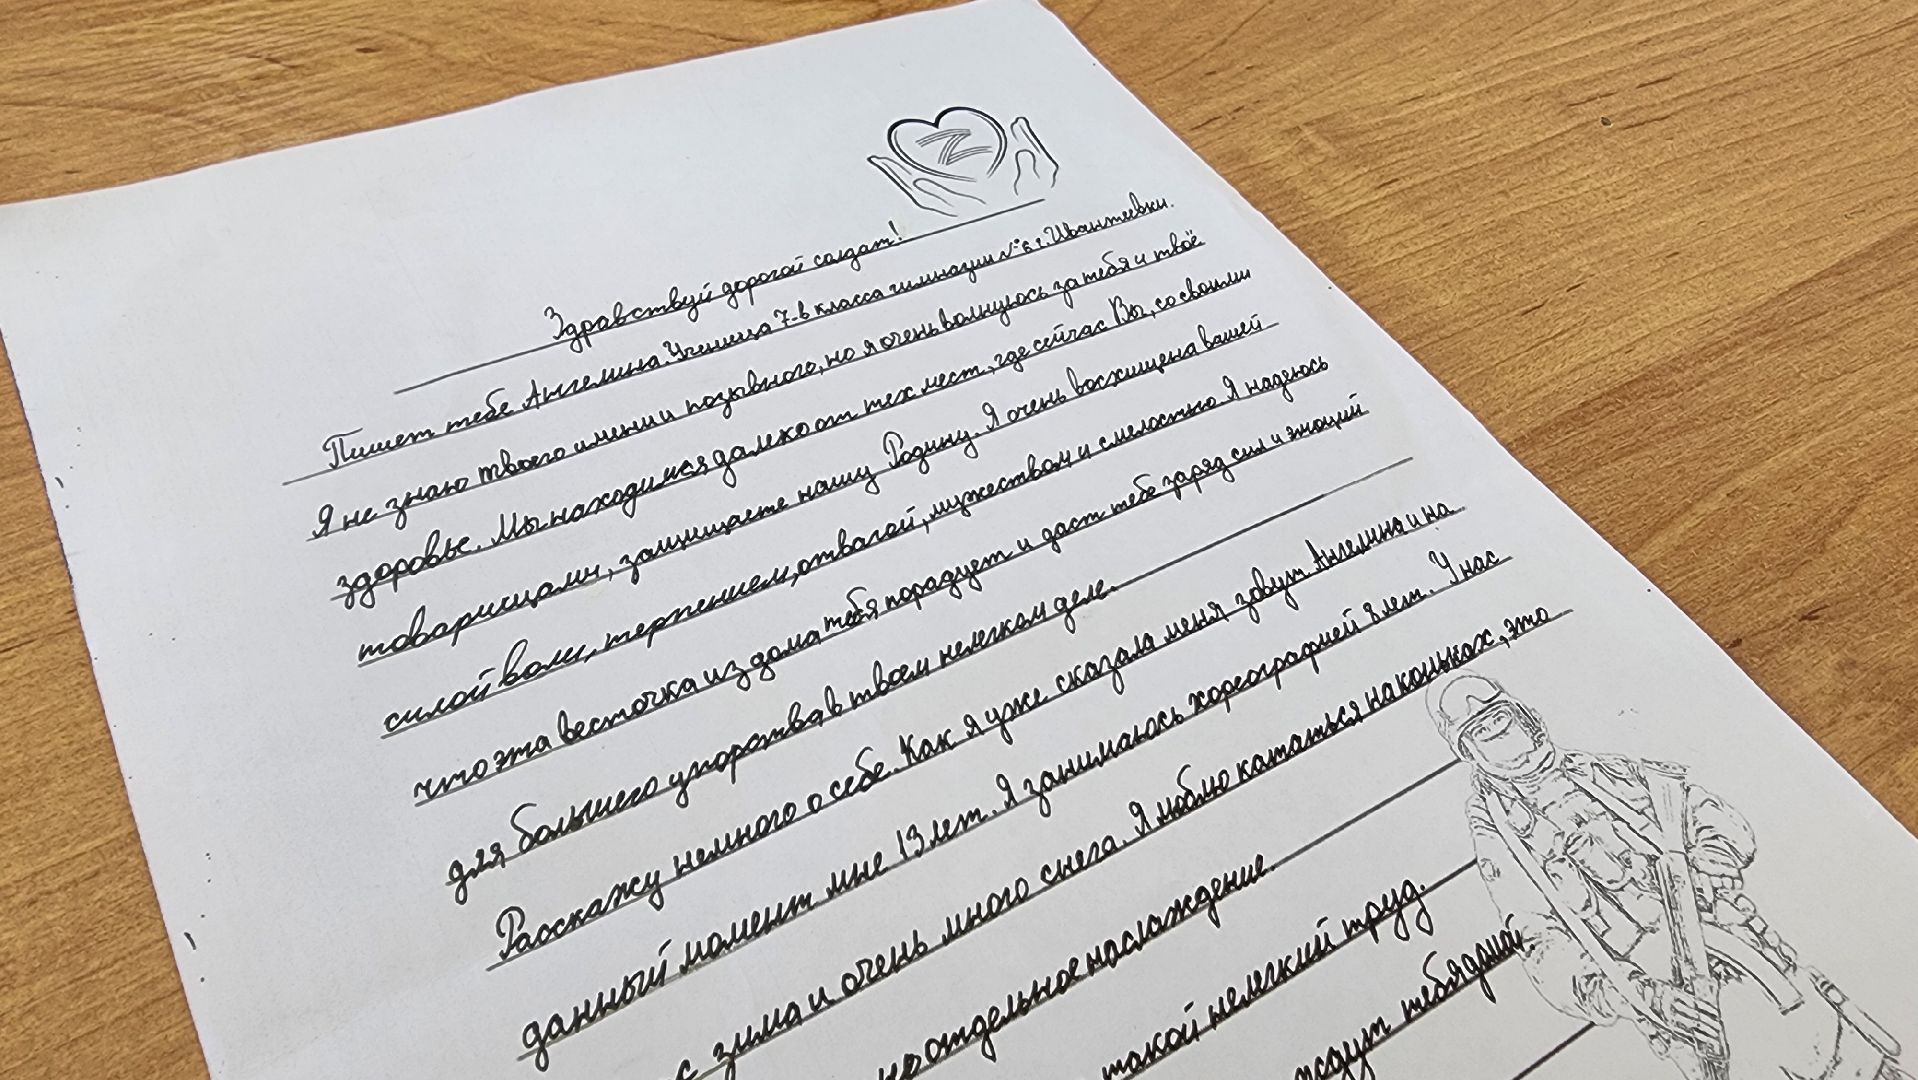 Z
Здравствуй дорогой солдат!
Пишет тебе Ангелина. Ученица 7-в класса гимназии №6 г. Ивантеевки.
Я не знаю твоего имени и позывного, но я очень волнуюсь за тебя и твоё
здоровье. Мы находимся далеко от тех мест, где сейчас Вы, со своими
товарищами, защищаете нашу Родину. Я очень восхищена вашей
силой воли, терпением, отвагой, мужеством и смелостью. Я надеюсь
что эта весточка из дома тебя порадует и даст тебе заряд сил и эмоций
для большего упорства в твоем нелегком деле.
Расскажу немного о себе. Как я уже сказала меня зовут Ангелина и на
данный момент мне 13 лет. Я занимаюсь хореографией 8 лет. У нас
с зима и очень много снега. Я люблю кататься на коньках, это
но отдельное наслаждение.
такой нелегкий труд.
ждут тебя домой.